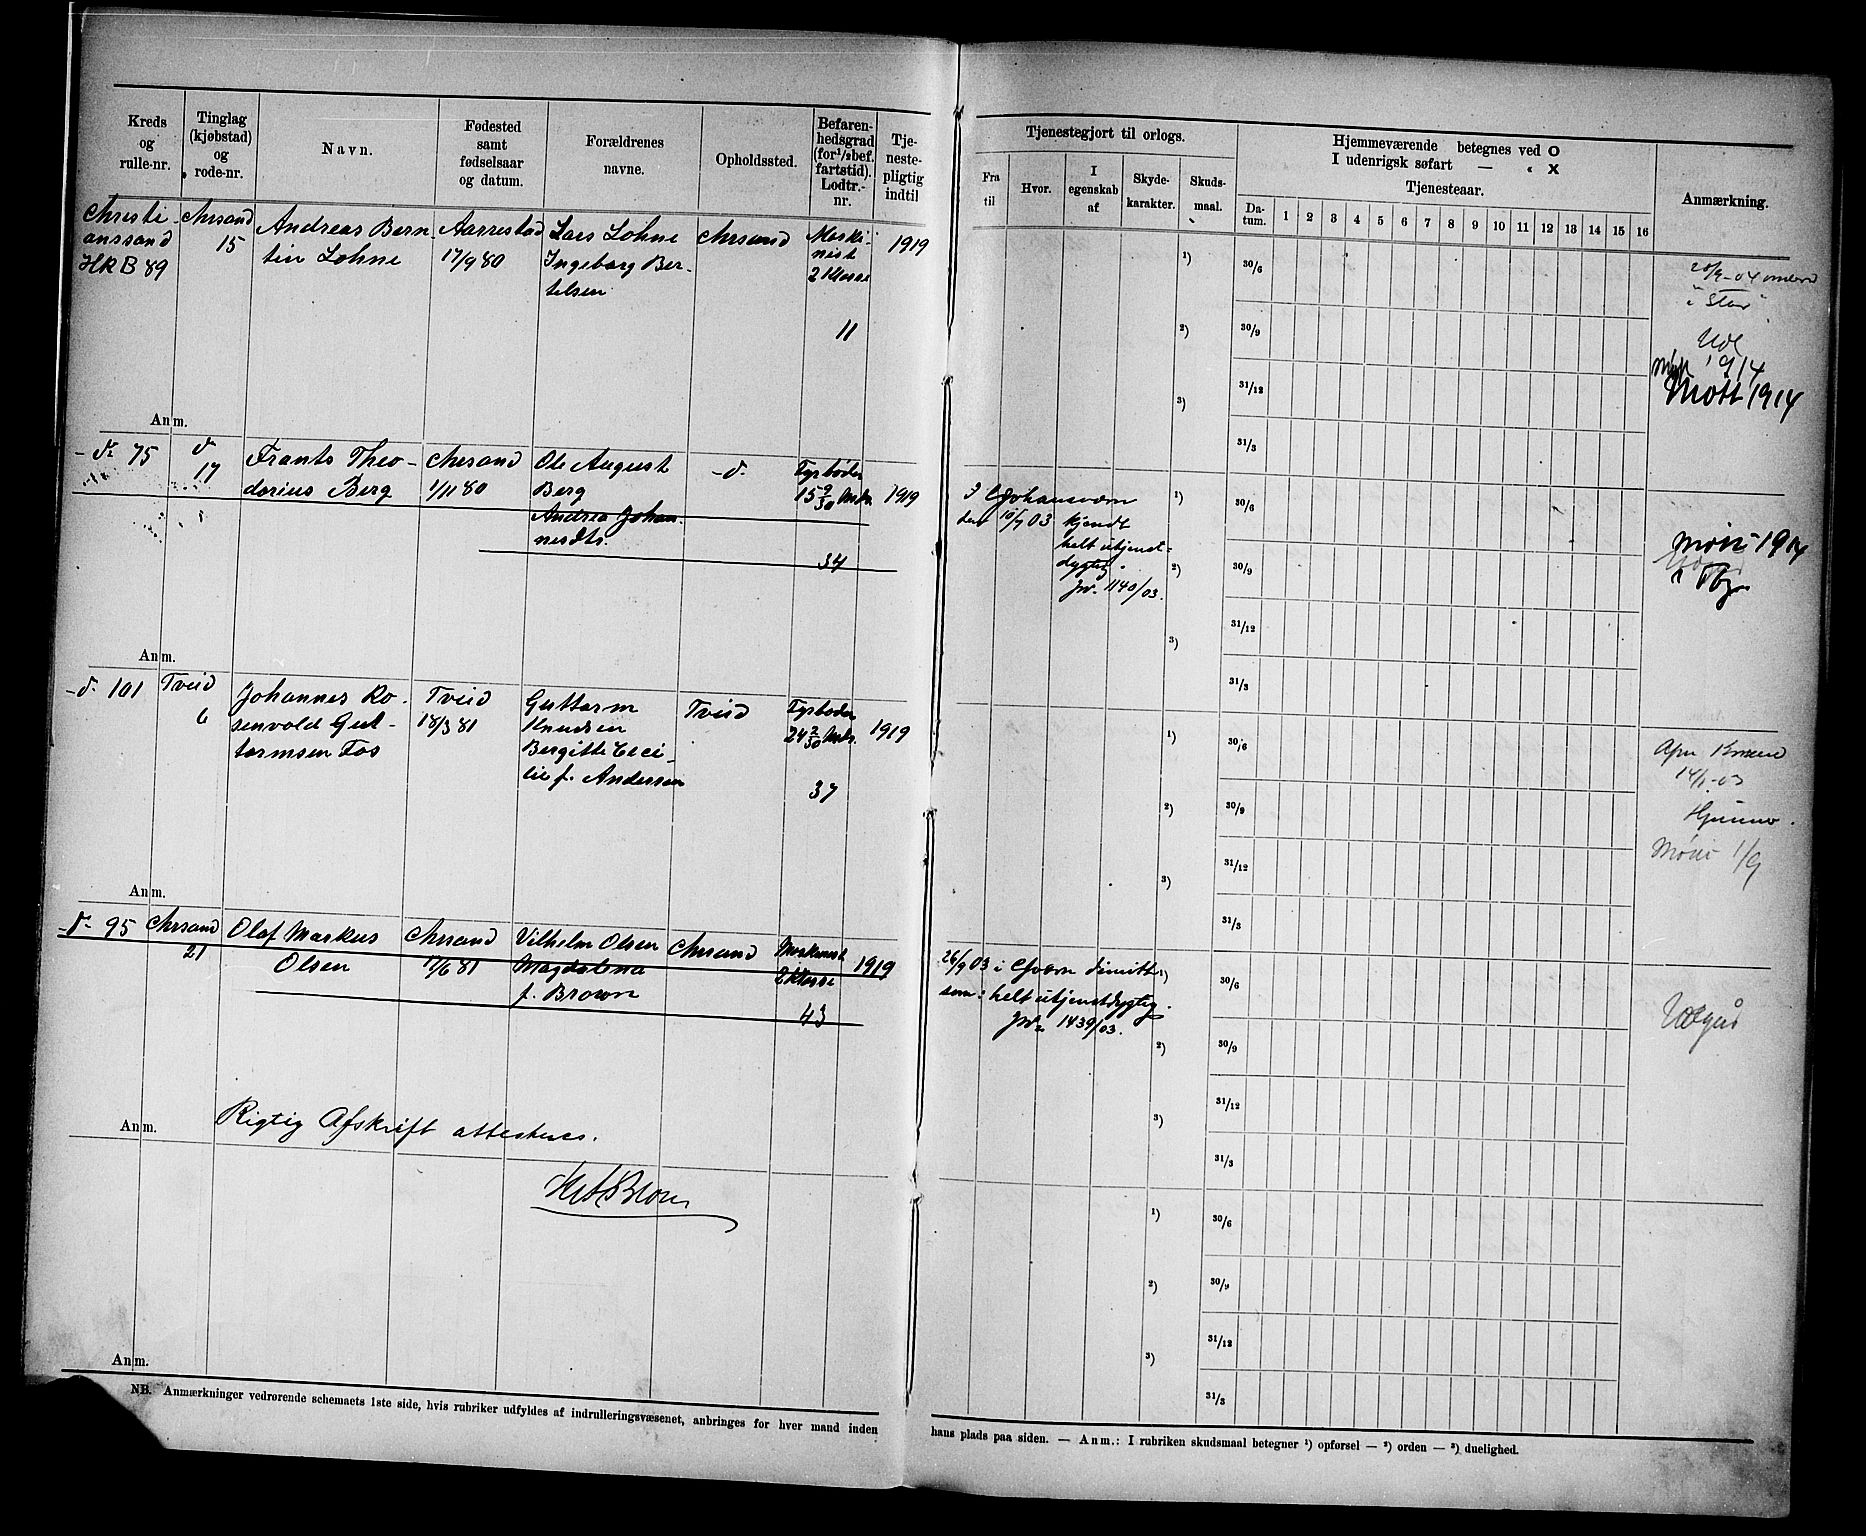 Kreds og rulle-nr.
Tinglag (kjøbstad) og rode-nr.
Navn.
Fødested samt fødselsaar og datum.
Forældrenes navne.
Opholdssted.
Befaren-hedsgrad (for ½ bef. fartstid). Lodtr.-nr.
Tje-neste-pligtig indtil
Tjenestegjort til orlogs.
Fra til
Hvor.
I egenskab af
Skyde-karakter.
Skuds-maal.
Hjemmeværende betegnes ved O
I udenrigsk søfart — „ X
Tjenesteaar.
Da-tum.
1 2 3 4 5 6 7 8 9 10 11 12 13 14 15 16
Anmærkning.
Christi-
anssand
HRB 89
Chrsand
15
Andreas Bern
tin Lohne
Aarrestad
17/9 80
Lars Lohne
Ingeborg Ber-
telsen
Chrsand
Maski-
nist
2 Klasse
11
1919
1)
2)
3)
30/6
30/9
31/12
31/3
i Star
1914
Møtt 1914
Anm.
-d- 75
d
17
Frants Theo-
dorius Berg
Chrsand
1/11 80
Ole August
Berg
Andrea Johan
nesdtr.
-d-
Fyrbøder
15 9/30 Mdr.
34
1919
Johansværn
10/7 03
kjendt
helt utjenst-
dygtig.
Jnr. 1140/03.
1)
2)
3)
30/6
30/9
31/12
31/3
1914
Anm.
-d- 101
Tveid
6
Johannes Ro-
senvold Gut-
tormsen Fos
Tveid
18/3 81
Guttorm
Knudsen
Bergitte Ceci-
lie f. Andersen
Tveid
Fyrbøder
24 2/30 Mdr.
37
1919
1)
2)
3)
30/6
30/9
31/12
31/3
Hjemme.
1/9
Anm.
-d- 95
Chrsand
21
Olaf Markus
Olsen
Chrsand
17/6 81
Vilhelm Olsen
Magdalena
f. Brown
Chrsand
Maskinist
2 Klasse
43
1919
26/9 03 i Hværn dimitt
som: helt utjenstdygtig.
Jnr. 1439/03.
1)
2)
3)
30/6
30/9
31/12
31/3
Anm.
Rigtig Afskrift attesteres.
1)
2)
3)
30/6
30/9
31/12
31/3
Anm.
NB. Anmærkninger vedrørende schemaets 1ste side, hvis rubriker udfyldes af indrulleringsvæsenet, anbringes for hver mand inden
hans plads paa siden. — Anm.: I rubriken skudsmaal betegner ¹) opførsel — ²) orden — ³) duelighed.